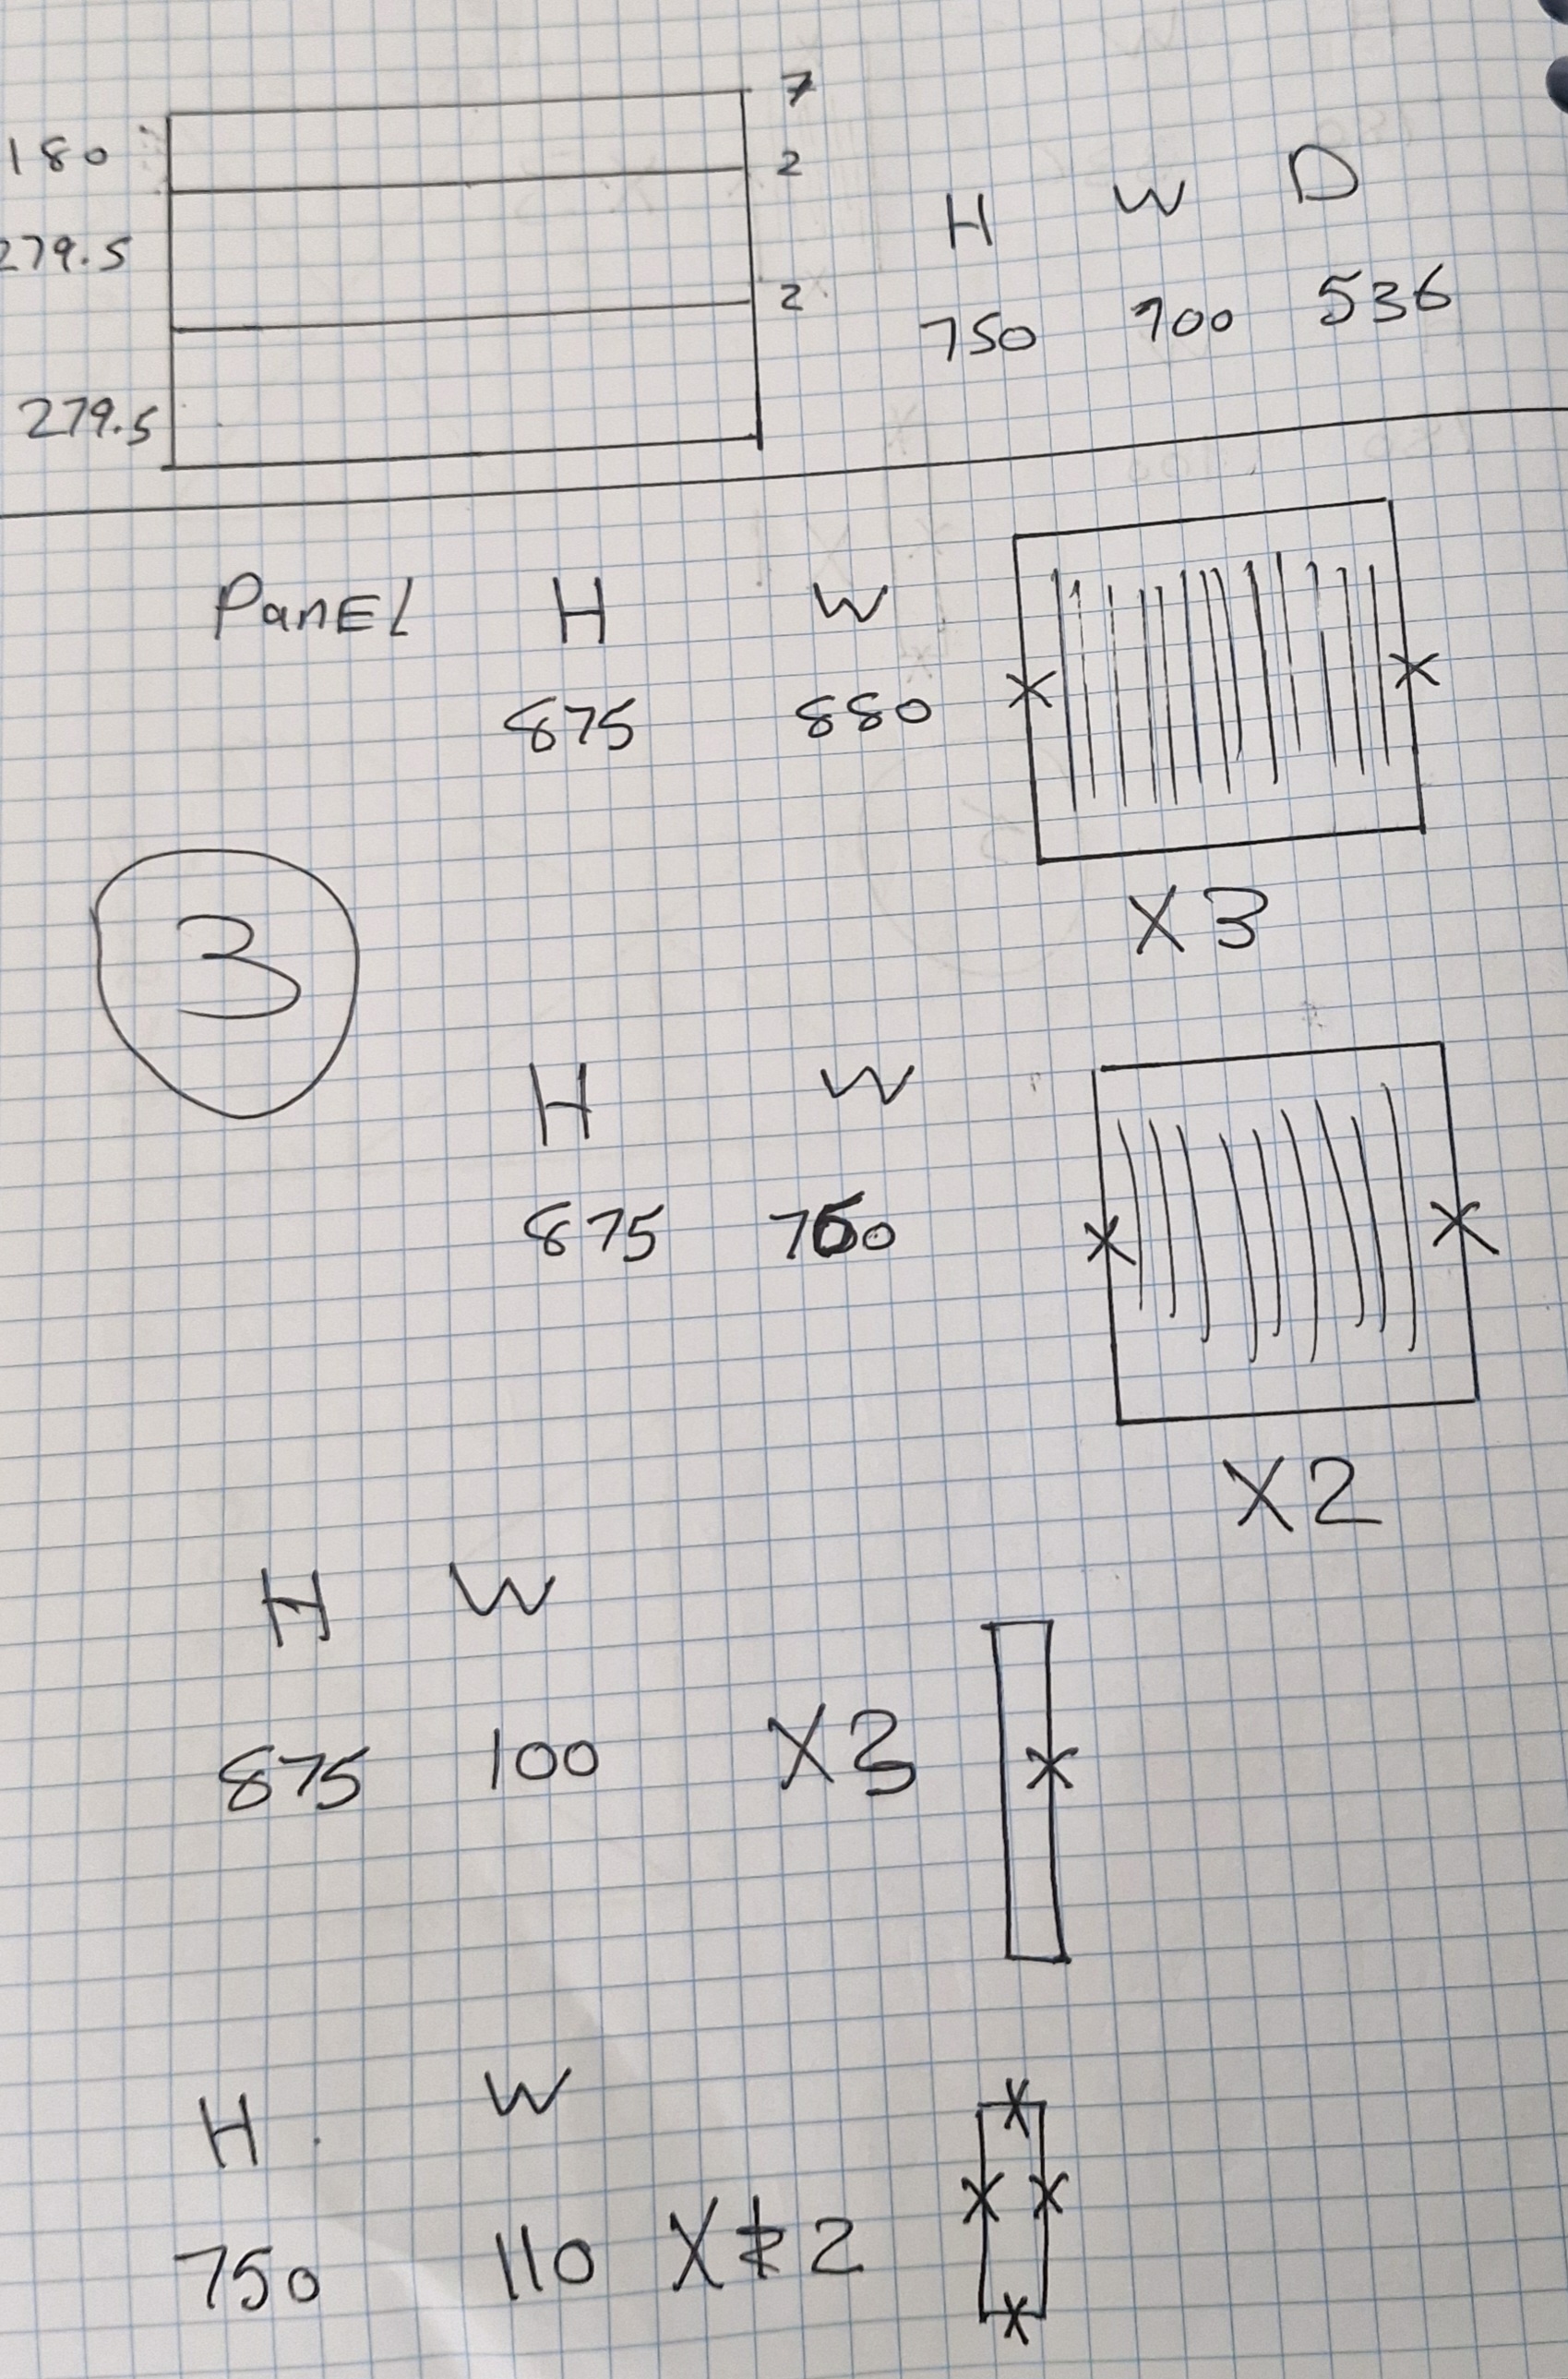 7
180
2
H W D
279.5
2
750 536
279.5
PanEL H W
875 880
X3
3
H W
875
X2
H W
875 100 X
H W
750 110 X 2